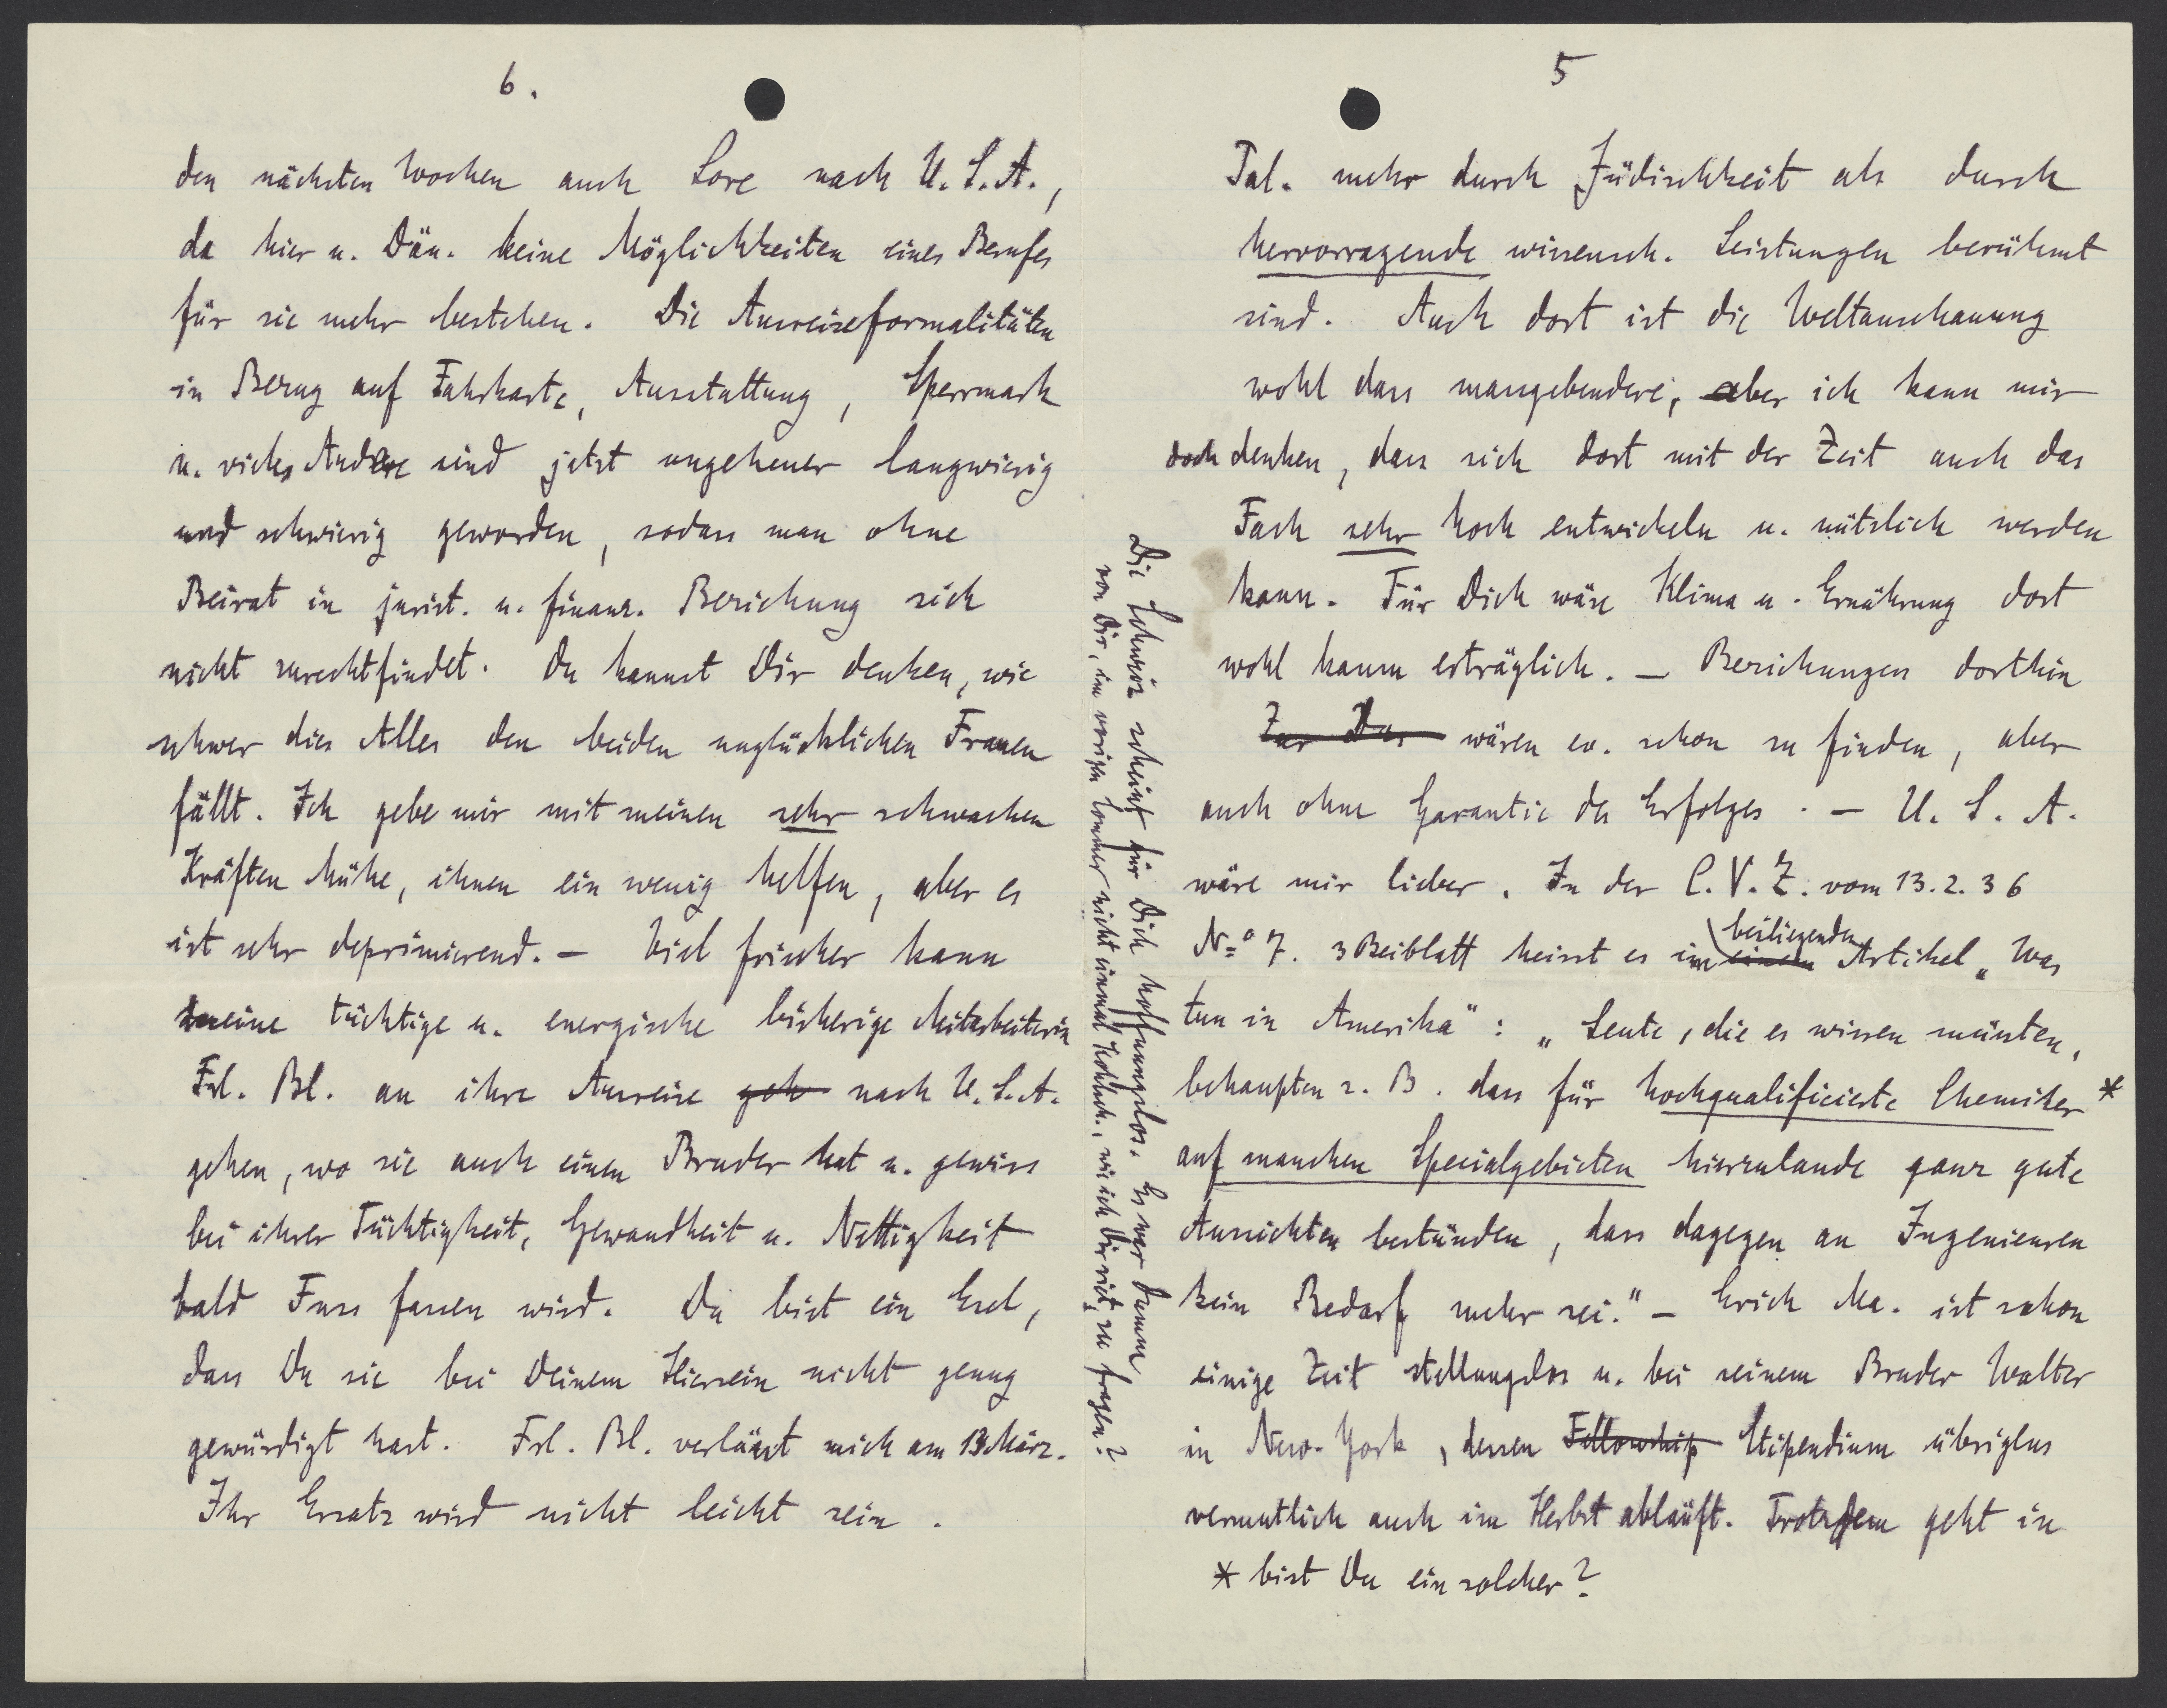 5
Pal. mehr durch Jüdischkeit als durch
hervorragende wissensch. Leistungen berühmt
sind. Auch dort ist die Weltanschauung
wohl dass massgebendere, aber ich kann mir
doch denken, dass sich dort mit der Zeit auch das
Fach sehr hoch entwickeln u. nützlich werden
kann. Für Dich wäre Klima u. Ernährung dort
wohl kaum erträglich. — Beziehungen dorthin
Zur Dur wären ev. schon zu finden, aber
auch ohne Garantie des Erfolges. — U. S. A.
wäre mir lieber. In der C. V. Z. vom 13.2.36
No 7. 3 Beiblatt heisst es im einem beiliegenden Artikel „Was
tun in Amerika": „Leute, die es wissen müssten,
behaupten z. B. dass für hochqualificierte Chemiker *
auf manchen Specialgebieten hierzulande ganz gute
Aussichten bestünden, dass dagegen an Ingenieuren
kein Bedarf mehr sei." — Erich Ma. ist schon
einige Zeit stellungslos u. bei seinem Bruder Walter
in New-York, dessen Fellowship Stipendium übrigens
vermutlich auch im Herbst abläuft. Trotzdem geht in
* bist Du ein solcher?
Die Schweiz scheint für Dich hoffnungslos. Es war dumm
von Dir, im vorigen Sommer nicht einmal Kohlsch., wie ich Dir riet, zu fragen?
6.
den nächsten Wochen auch Lore nach U. S. A.,
da hier u. Dän. keine Möglichkeiten eines Berufes
für sie mehr bestehen. Die Ausreiseformalitäten
in Bezug auf Fahrkarte, Ausstattung, Sperrmark
u. vieles Andere sind jetzt ungeheuer langwierig
und schwierig geworden, sodass man ohne
Beirat in jurist. u. finanz. Beziehung sich
nicht zurechtfindet. Du kannst Dir denken, wie
schwer dies Alles den beiden unglücklichen Frauen
fällt. Ich gebe mir mit meinen sehr schwachen
Kräften Mühe, ihnen ein wenig helfen, aber es
ist sehr deprimierend. — Viel frischer kann
meine tüchtige u. energische bisherige Mitarbeiterin
Frl. Bl. an ihre Ausreise geh nach U. S. A.
gehen, wo sie auch einen Bruder hat u. gewiss
bei ihrer Tüchtigkeit, Gewandheit u. Nettigkeit
bald Fuss fassen wird. Du bist ein Esel,
dass Du sie bei Deinem Hiersein nicht genug
gewürdigt hast. Frl. Bl. verlässt mich am 13 März.
Ihr Ersatz wird nicht leicht sein.